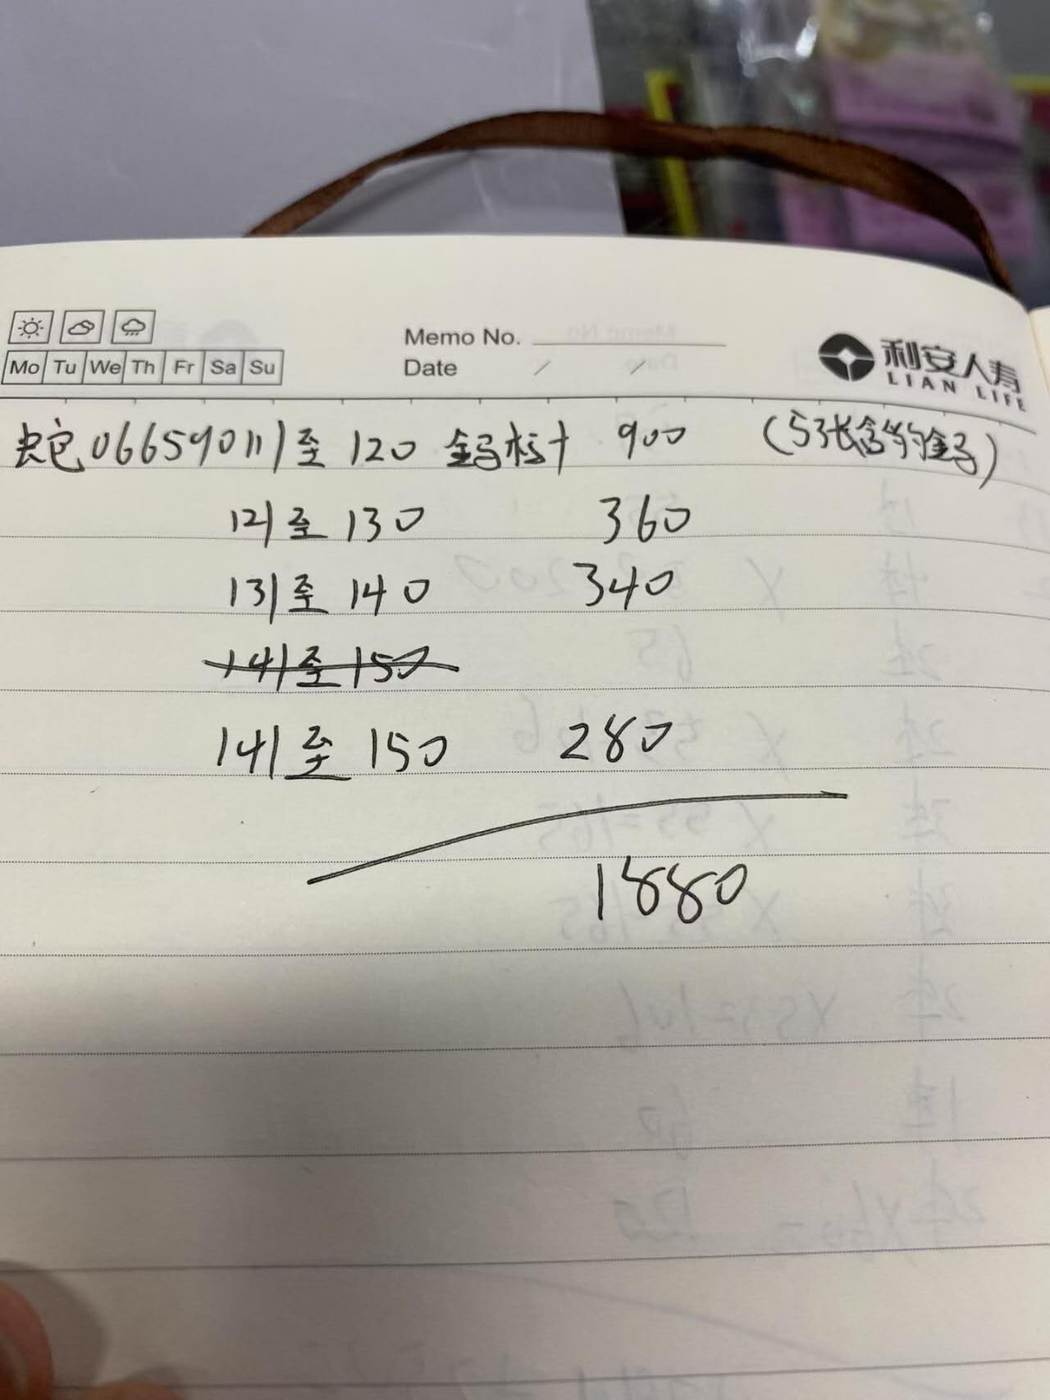 Memo No.
Mo Tu We Th Fr Sa Su
Date / /
利安人寿
LIAN LIFE
蛇066590111至120 钞标十 900 (5张含豹金马)
121至130 360
131至140 340
141至150
141至150 280
1880